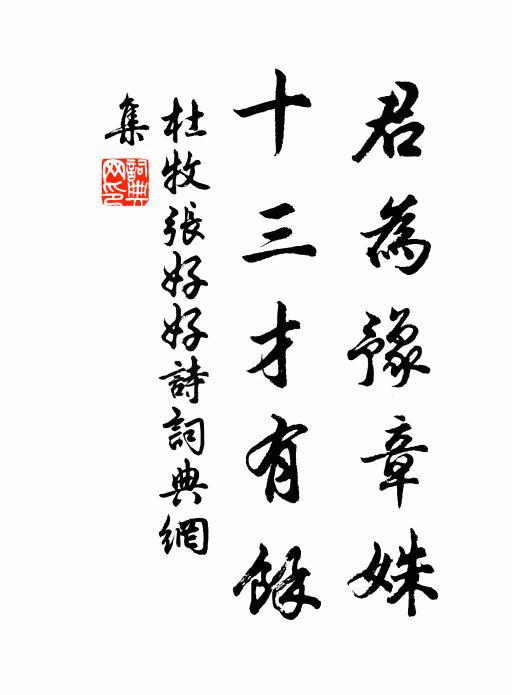 君為豫章姝
十三才有餘
杜牧張好好詩詞典網
集
詞典網印